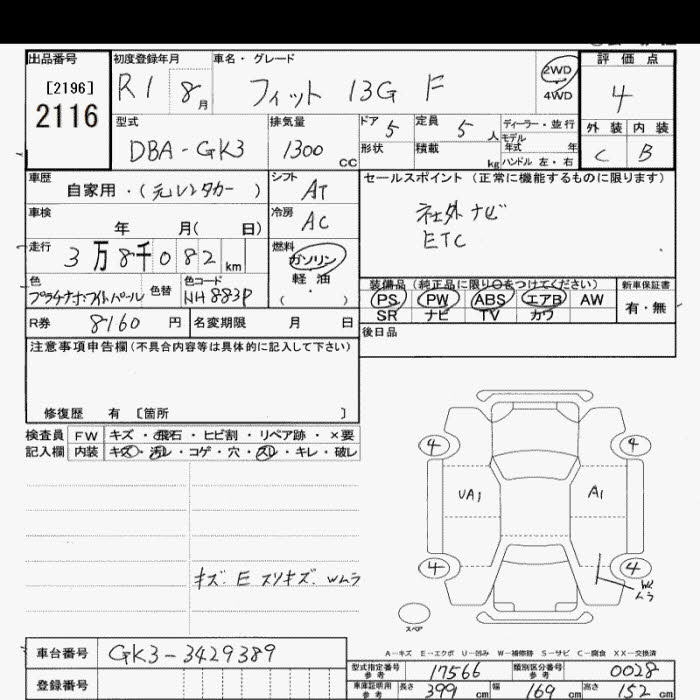 出品番号 初度登録年月 車名・グレード 評価点
[2196] R1 8月 フィット 13G F 2WD 4
2116 4WD
型式 排気量 ドア 定員 ディーラー・並行 外装 内装
DBA-GK3 1300cc 5 5人 モデル年式 年 C B
形状 積載 kg ハンドル 左・右
車歴 シフト セールスポイント (正常に機能するものに限ります)
自家用・(元レンタカー) AT 社外ナビ
車検 冷房 ETC
年 月( 日) AC
走行 燃料
3万8千082km ガソリン
軽油
( ・ )
色 色替 色コード 装備品 (純正品に限り○をつけてください) 新車保証書
プラチナホワイトパール NH883P PS PW ABS エアB AW 有・無
SR ナビ TV カワ
R券 8160円 名変期限 月 日 後日品
注意事項申告欄(不具合内容等は具体的に記入して下さい)
修復歴 有 [箇所 ]
検査員 FW キズ・飛石・ヒビ割・リペア跡・×要
記入欄 内装 キズ・汚レ・コゲ・穴・スレ・キレ・破レ
4 4
UA1 A1
4 4
キズ. E スリキズ. Wムラ
スペア
A-キズ E-エクボ U-凹み W-補修跡 S-サビ C-腐食 XX-交換済
車台番号 GK3-3429389
型式指定番号 参考 17566 類別区分番号 参考 0028
登録番号
車庫証明用 参考 長さ 399cm 幅 169cm 高さ 152cm